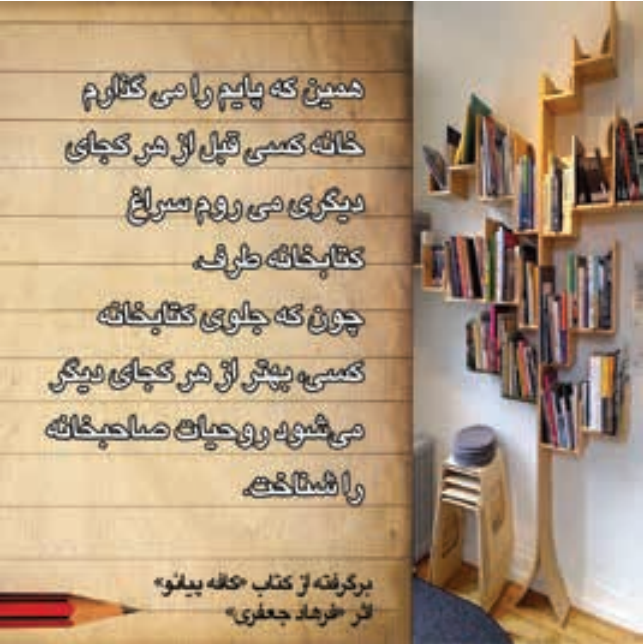 همین که پایم را می گذارم
خانه کسی قبل از هر کجای
دیگری می روم سراغ
کتابخانه طرف.
چون که جلوی کتابخانه
کسی، بهتر از هر کجای دیگر
می‌شود روحیات صاحبخانه
را شناخت.
برگرفته از کتاب «کافه پیانو»
اثر «فرهاد جعفری»